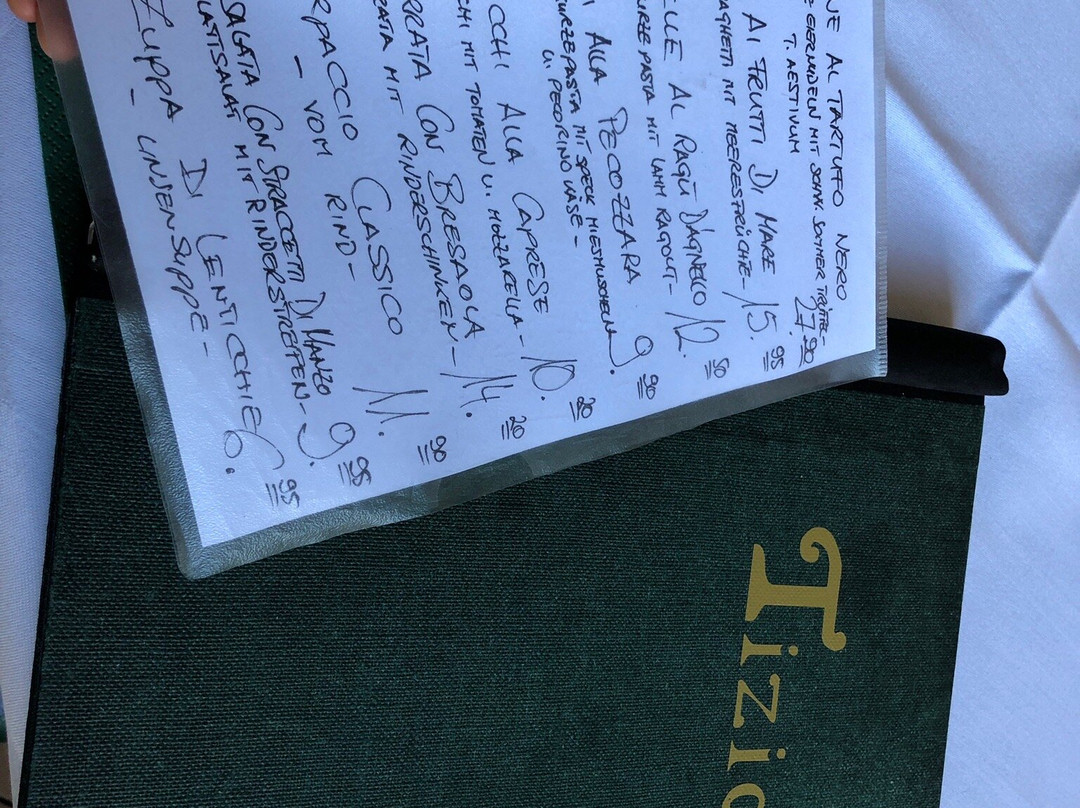 JE AL TARTUFO NERO
- EIERNUDELN MIT SCHW. SOMMER TRÜFFEL -
T. AESTIVUM 27.90
AI FRUTTI DI MARE
AGHETTI MIT MEERESFRÜCHTE - 15.95
ELLE AL RAGÙ D'AGNELLO
URZE PASTA MIT LAMM RAGOUT - 12.50
I ALLA PECOZZARA
URZE PASTA MIT SPECK MIESMUSCHELN
U. PECORINO KÄSE - 9.90
CCHI ALLA CAPRESE
CHI MIT TOMATEN U. MOZZARELLA - 10.20
RRATA CON BRESAOLA
RATA MIT RINDERSCHINKEN - 14.20
RPACCIO CLASSICO
- VOM RIND - 11.90
SALATA CON STRACCETTI DI MANZO
LATTSALAT MIT RINDERSTREIFEN - 9.95
ZUPPA DI LENTICCHIE
- LINSENSUPPE - 6.95
Tizio